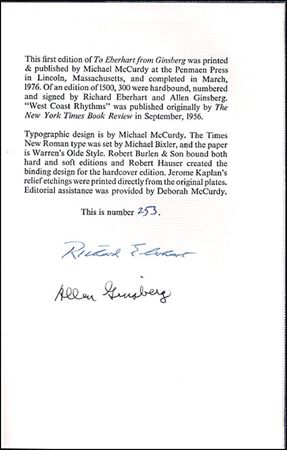 This first edition of To Eberhart from Ginsberg was printed
& published by Michael McCurdy at the Penmaen Press
in Lincoln, Massachusetts, and completed in March,
1976. Of an edition of 1500, 300 were hardbound, numbered
and signed by Richard Eberhart and Allen Ginsberg.
"West Coast Rhythms" was published originally by The
New York Times Book Review in September, 1956.
Typographic design is by Michael McCurdy. The Times
New Roman type was set by Michael Bixler, and the paper
is Warren's Olde Style. Robert Burlen & Son bound both
hard and soft editions and Robert Hauser created the
binding design for the hardcover edition. Jerome Kaplan's
relief etchings were printed directly from the original plates.
Editorial assistance was provided by Deborah McCurdy.
This is number 253.
Richard Eberhart
Allen Ginsberg